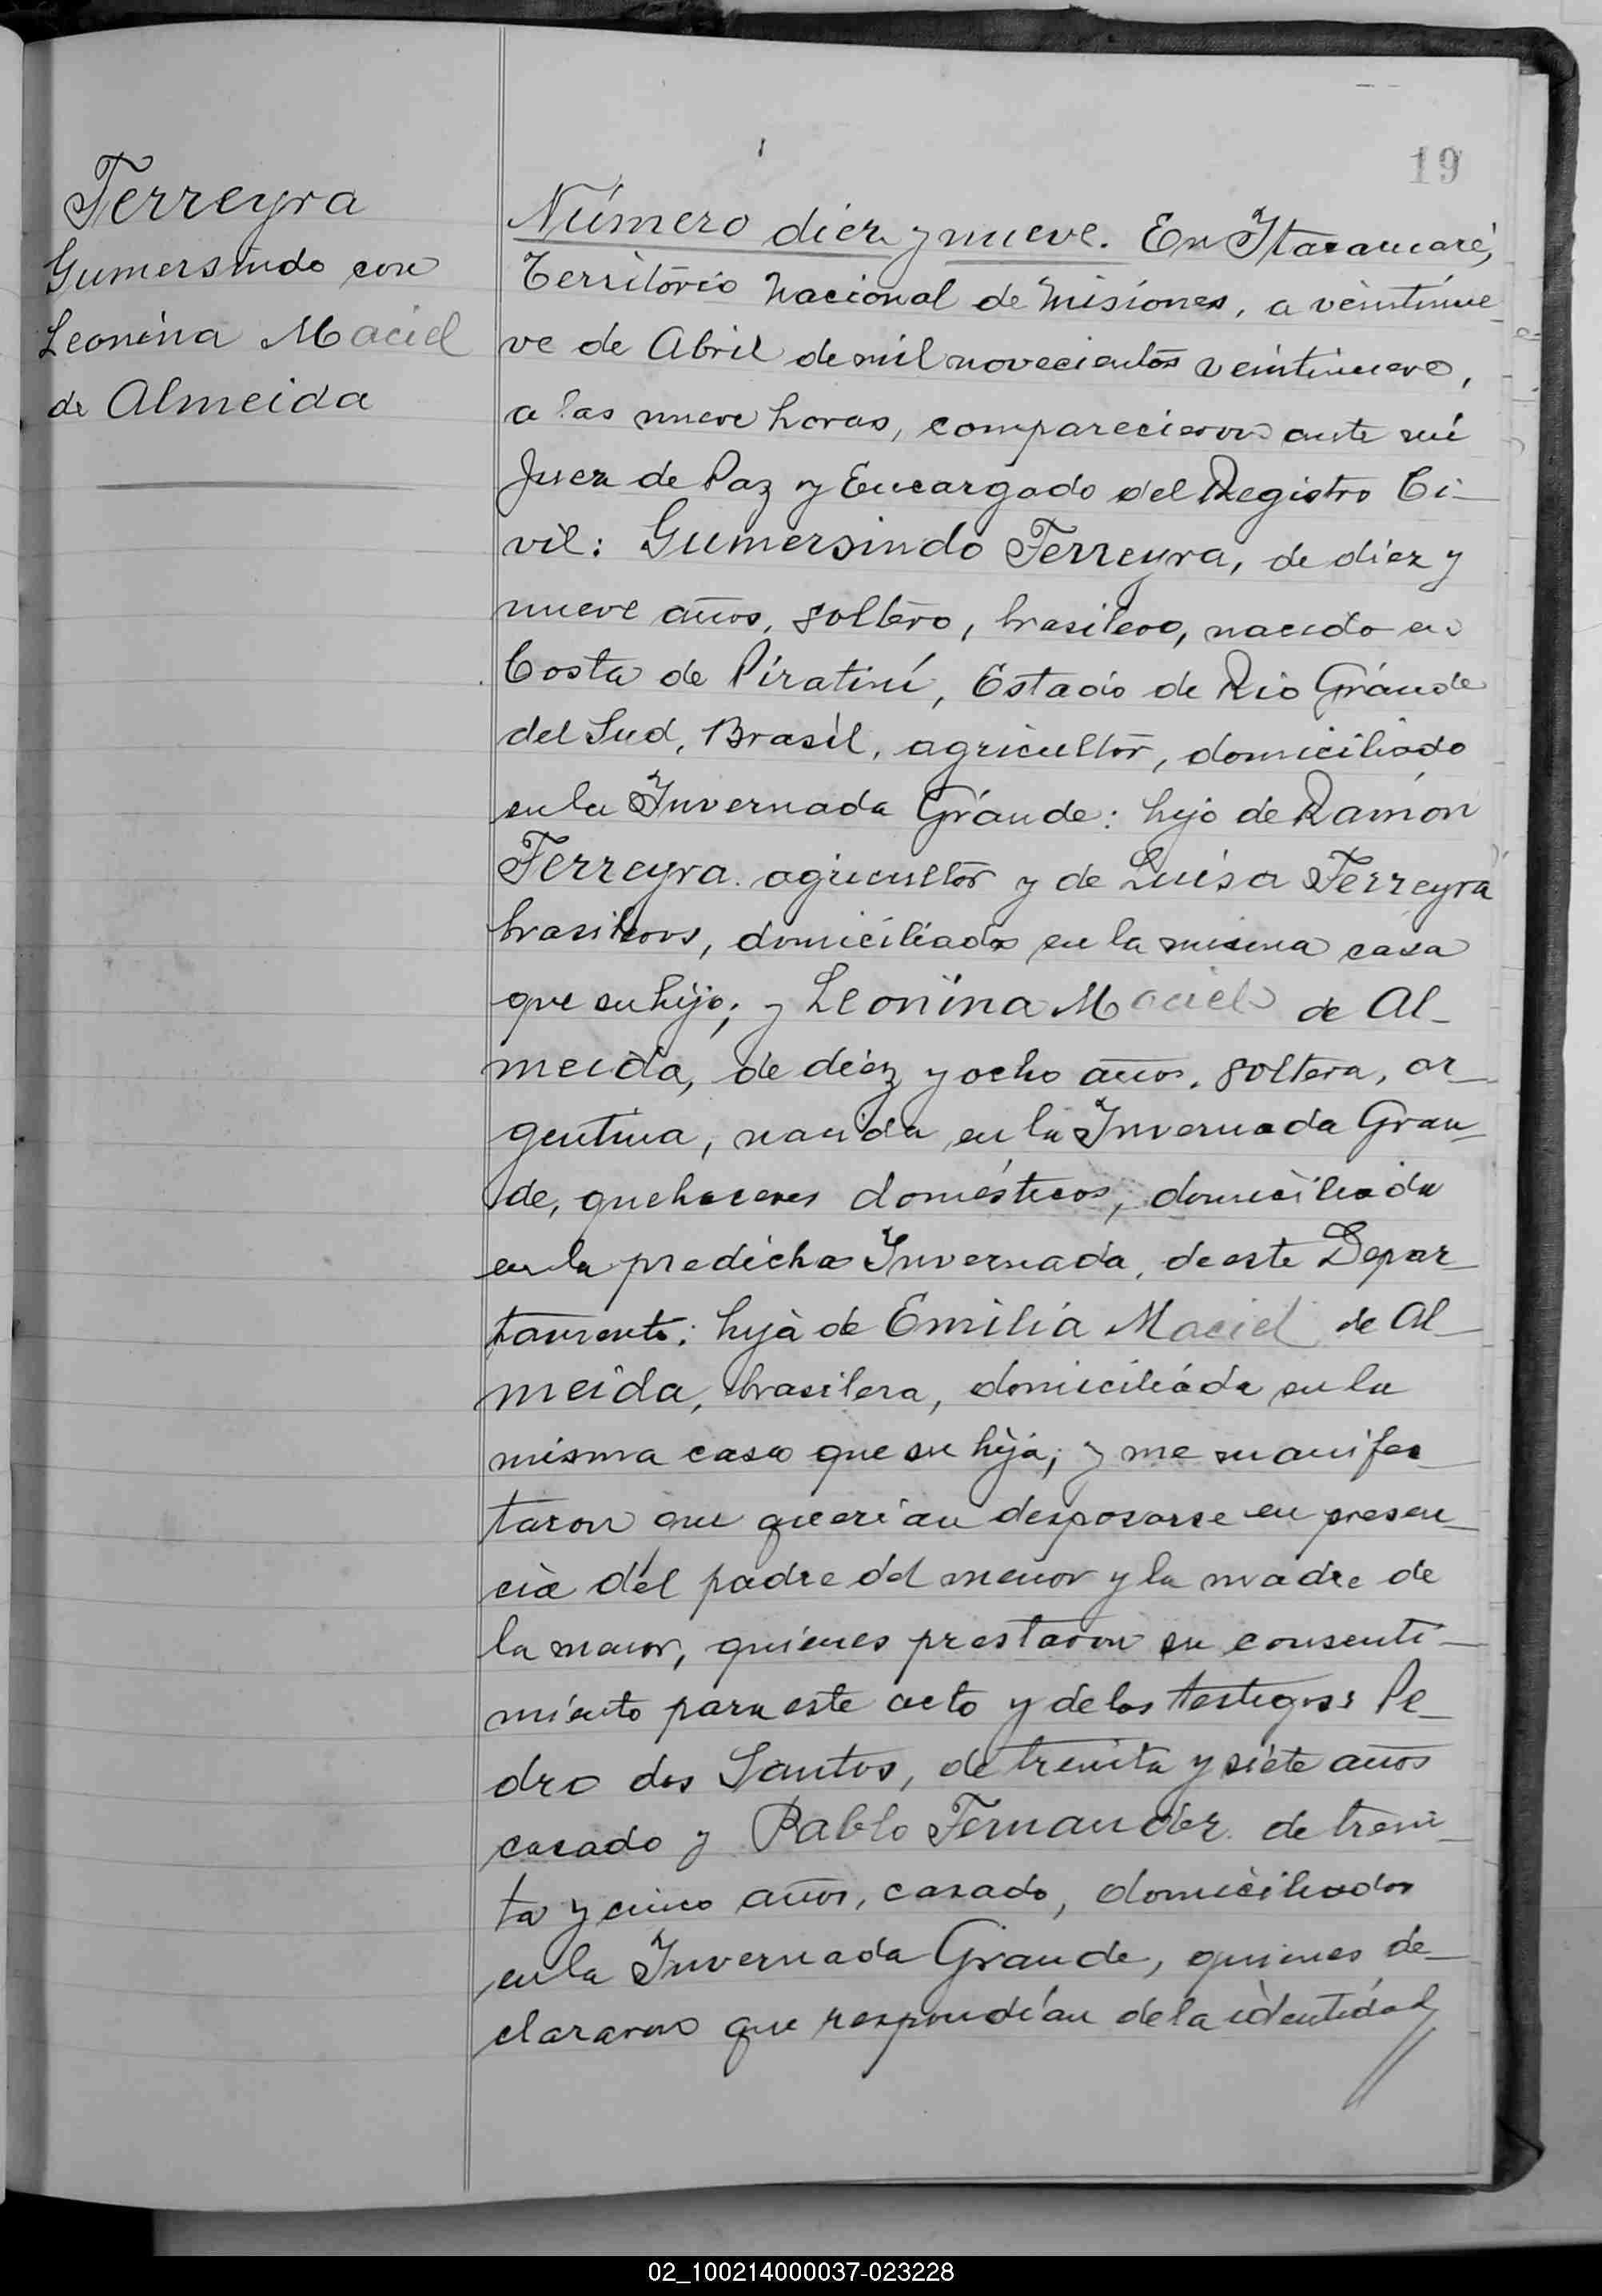 19
Ferreyra
Gumersindo con
Leonina Maciel
de Almeida
Número diez y nueve. En Itacaruaré,
Territorio Nacional de Misiones, a veintinue-
ve de Abril de mil novecientos veintinueve,
a las nueve horas, comparecieron ante mí
Juez de Paz y Encargado del Registro Ci-
vil: Gumersindo Ferreyra, de diez y
nueve años, soltero, brasilero, nacido en
Costa de Piratiní, Estado de Rio Grande
del Sud, Brasil, agricultor, domiciliado
en la Invernada Grande: hijo de Ramón
Ferreyra. agricultor y de Luisa Ferreyra
brasileros, domiciliados en la misma casa
que su hijo; y Leonina Maciel de Al-
meida, de diez y ocho años, soltera, ar-
gentina, nacida en la Invernada Gran-
de, quehaceres domésticos, domiciliada
en la predicha Invernada, de este Depar-
tamento: hija de Emilia Maciel de Al-
meida, brasilera, domiciliada en la
misma casa que su hija; y me manifes-
taron que querían desposarse en presen-
cia del padre del menor y la madre de
la menor, quienes prestaron su consenti-
miento para este acto y de los testigos: Pe-
dro dos Santos, de treinta y siete años
casado y Pablo Fernandez de trein-
ta y cinco años, casado, domiciliados
en la Invernada Grande, quienes de-
clararon que respondían de la identidad
02_100214000037-023228